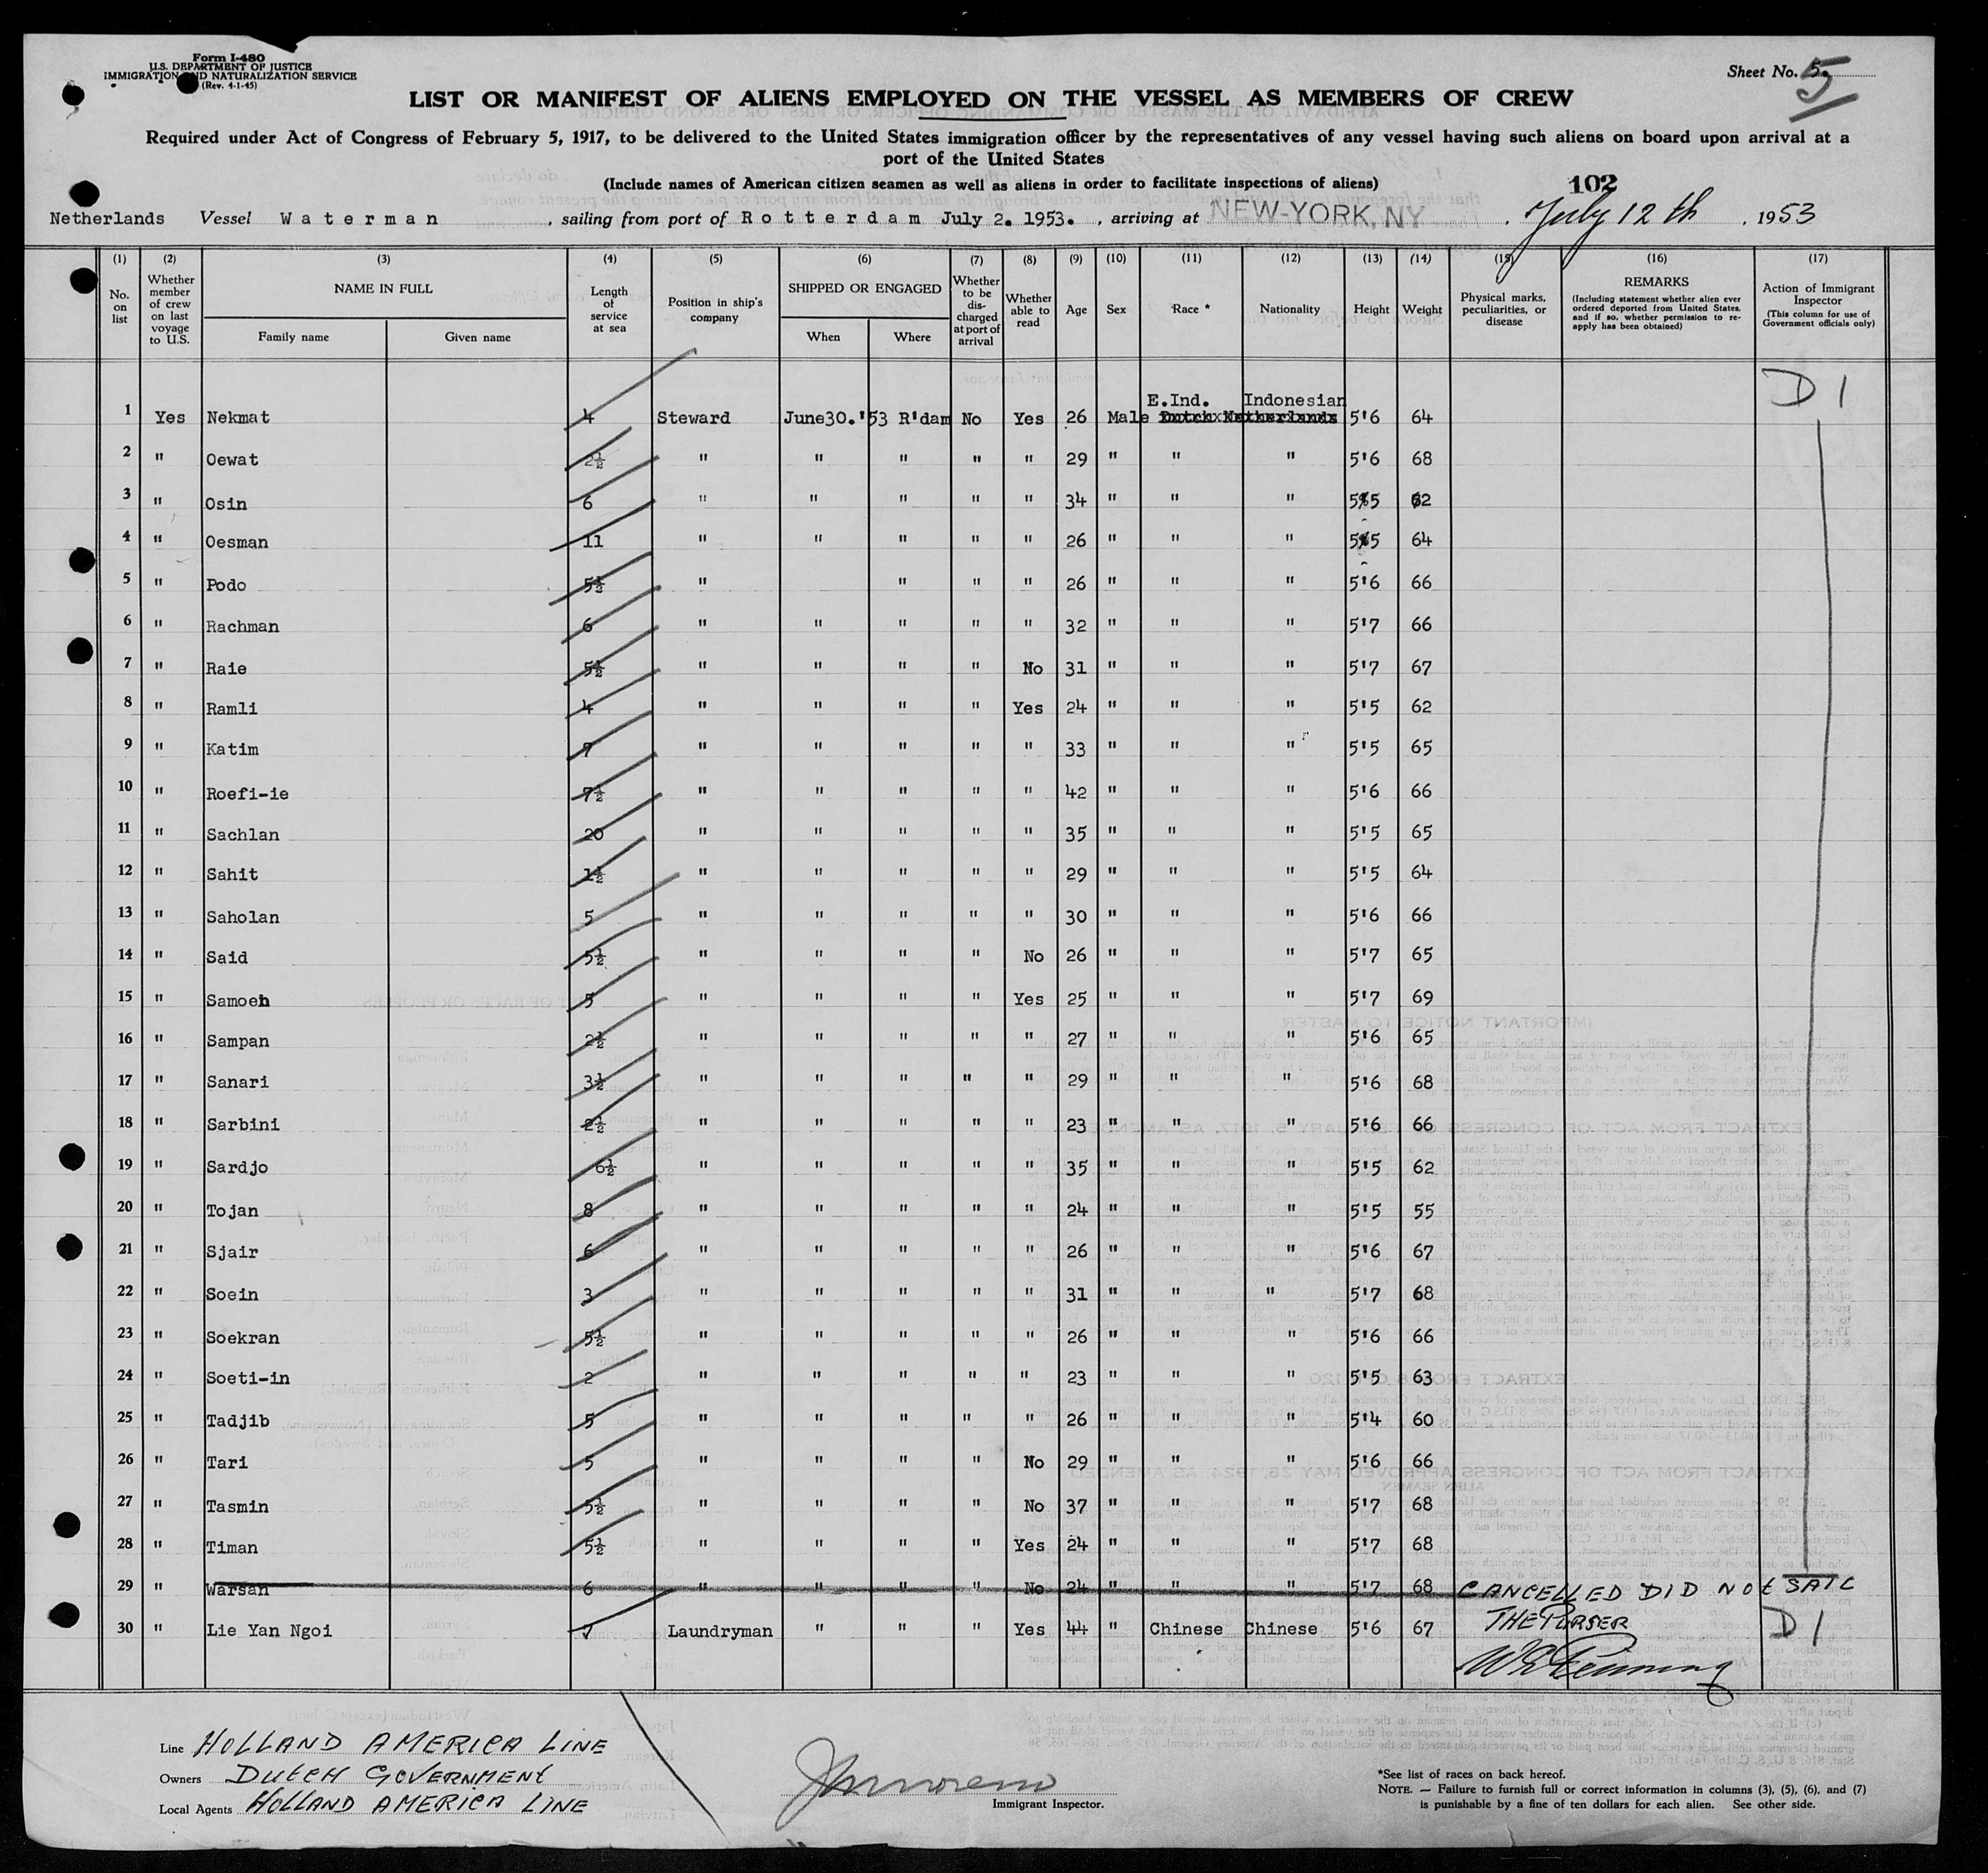 Form I-480
U.S. DEPARTMENT OF JUSTICE
IMMIGRATION AND NATURALIZATION SERVICE
(Rev. 4-1-45)
Sheet No. 5.
5
LIST OR MANIFEST OF ALIENS EMPLOYED ON THE VESSEL AS MEMBERS OF CREW
Required under Act of Congress of February 5, 1917, to be delivered to the United States immigration officer by the representatives of any vessel having such aliens on board upon arrival at a
port of the United States
(Include names of American citizen seamen as well as aliens in order to facilitate inspections of aliens)
102
Netherlands Vessel Waterman, sailing from port of Rotterdam July 2. 1953., arriving at NEW-YORK, NY, July 12th, 1953
(1) (2) (3) (4) (5) (6) (7) (8) (9) (10) (11) (12) (13) (14) (15) (16) (17)
No. on list Whether member of crew on last voyage to U.S. NAME IN FULL Family name Given name Length of service at sea Position in ship's company SHIPPED OR ENGAGED When Where Whether to be discharged at port of arrival Whether able to read Age Sex Race * Nationality Height Weight Physical marks, peculiarities, or disease REMARKS (Including statement whether alien ever ordered deported from United States, and if so, whether permission to reapply has been obtained) Action of Immigrant Inspector (This column for use of Government officials only)
D 1
E.Ind. Indonesian
1 Yes Nekmat 4 Steward June30.'53 R'dam No Yes 26 Male Dutch Netherlands 5'6 64
2 " Oewat 2½ " " " " " 29 " " " 5'6 68
3 " Osin 6 " " " " " 34 " " " 5'5 62
4 " Oesman 11 " " " " " 26 " " " 5'5 64
5 " Podo 5½ " " " " 26 " " " 5'6 66
6 " Rachman 6 " " " " " 32 " " " 5'7 66
7 " Raie 5½ " " " " No 31 " " " 5'7 67
8 " Ramli 4 " " " " Yes 24 " " " 5'5 62
9 " Katim 7 " " " " " 33 " " " 5'5 65
10 " Roefi-ie 7½ " " " " " 42 " " " 5'6 66
11 " Sachlan 20 " " " " " 35 " " " 5'5 65
12 " Sahit 1½ " " " " " 29 " " " 5'5 64
13 " Saholan 5 " " " " " 30 " " " 5'6 66
14 " Said 5½ " " " " No 26 " " " 5'7 65
15 " Samoeh 5 " " " " Yes 25 " " " 5'7 69
16 " Sampan 2½ " " " " " 27 " " " 5'6 65
17 " Sanari 3½ " " " " " 29 " " " 5'6 68
18 " Sarbini 2½ " " " " " 23 " " " 5'6 66
19 " Sardjo 6½ " " " " " 35 " " " 5'5 62
20 " Tojan 8 " " " " " 24 " " " 5'5 55
21 " Sjair 6 " " " " " 26 " " " 5'6 67
22 " Soein 3 " " " " " 31 " " " 5'7 68
23 " Soekran 5½ " " " " " 26 " " " 5'6 66
24 " Soeti-in 2 " " " " " 23 " " " 5'5 63
25 " Tadjib 5 " " " " " 26 " " " 5'4 60
26 " Tari 5 " " " " No 29 " " " 5'6 66
27 " Tasmin 5½ " " " " No 37 " " " 5'7 68
28 " Timan 5½ " " " " Yes 24 " " " 5'7 68
29 " Warsan 6 " " " " No 24 " " " 5'7 68 CANCELLED DID NOT SAIL
30 " Lie Yan Ngoi Laundryman " " " Yes 44 " Chinese Chinese 5'6 67 THE PURSER D 1
Line HOLLAND AMERICA LINE
Owners DUTCH GOVERNMENT
Local Agents HOLLAND AMERICA LINE
Immigrant Inspector.
*See list of races on back hereof.
NOTE. — Failure to furnish full or correct information in columns (3), (5), (6), and (7)
is punishable by a fine of ten dollars for each alien. See other side.